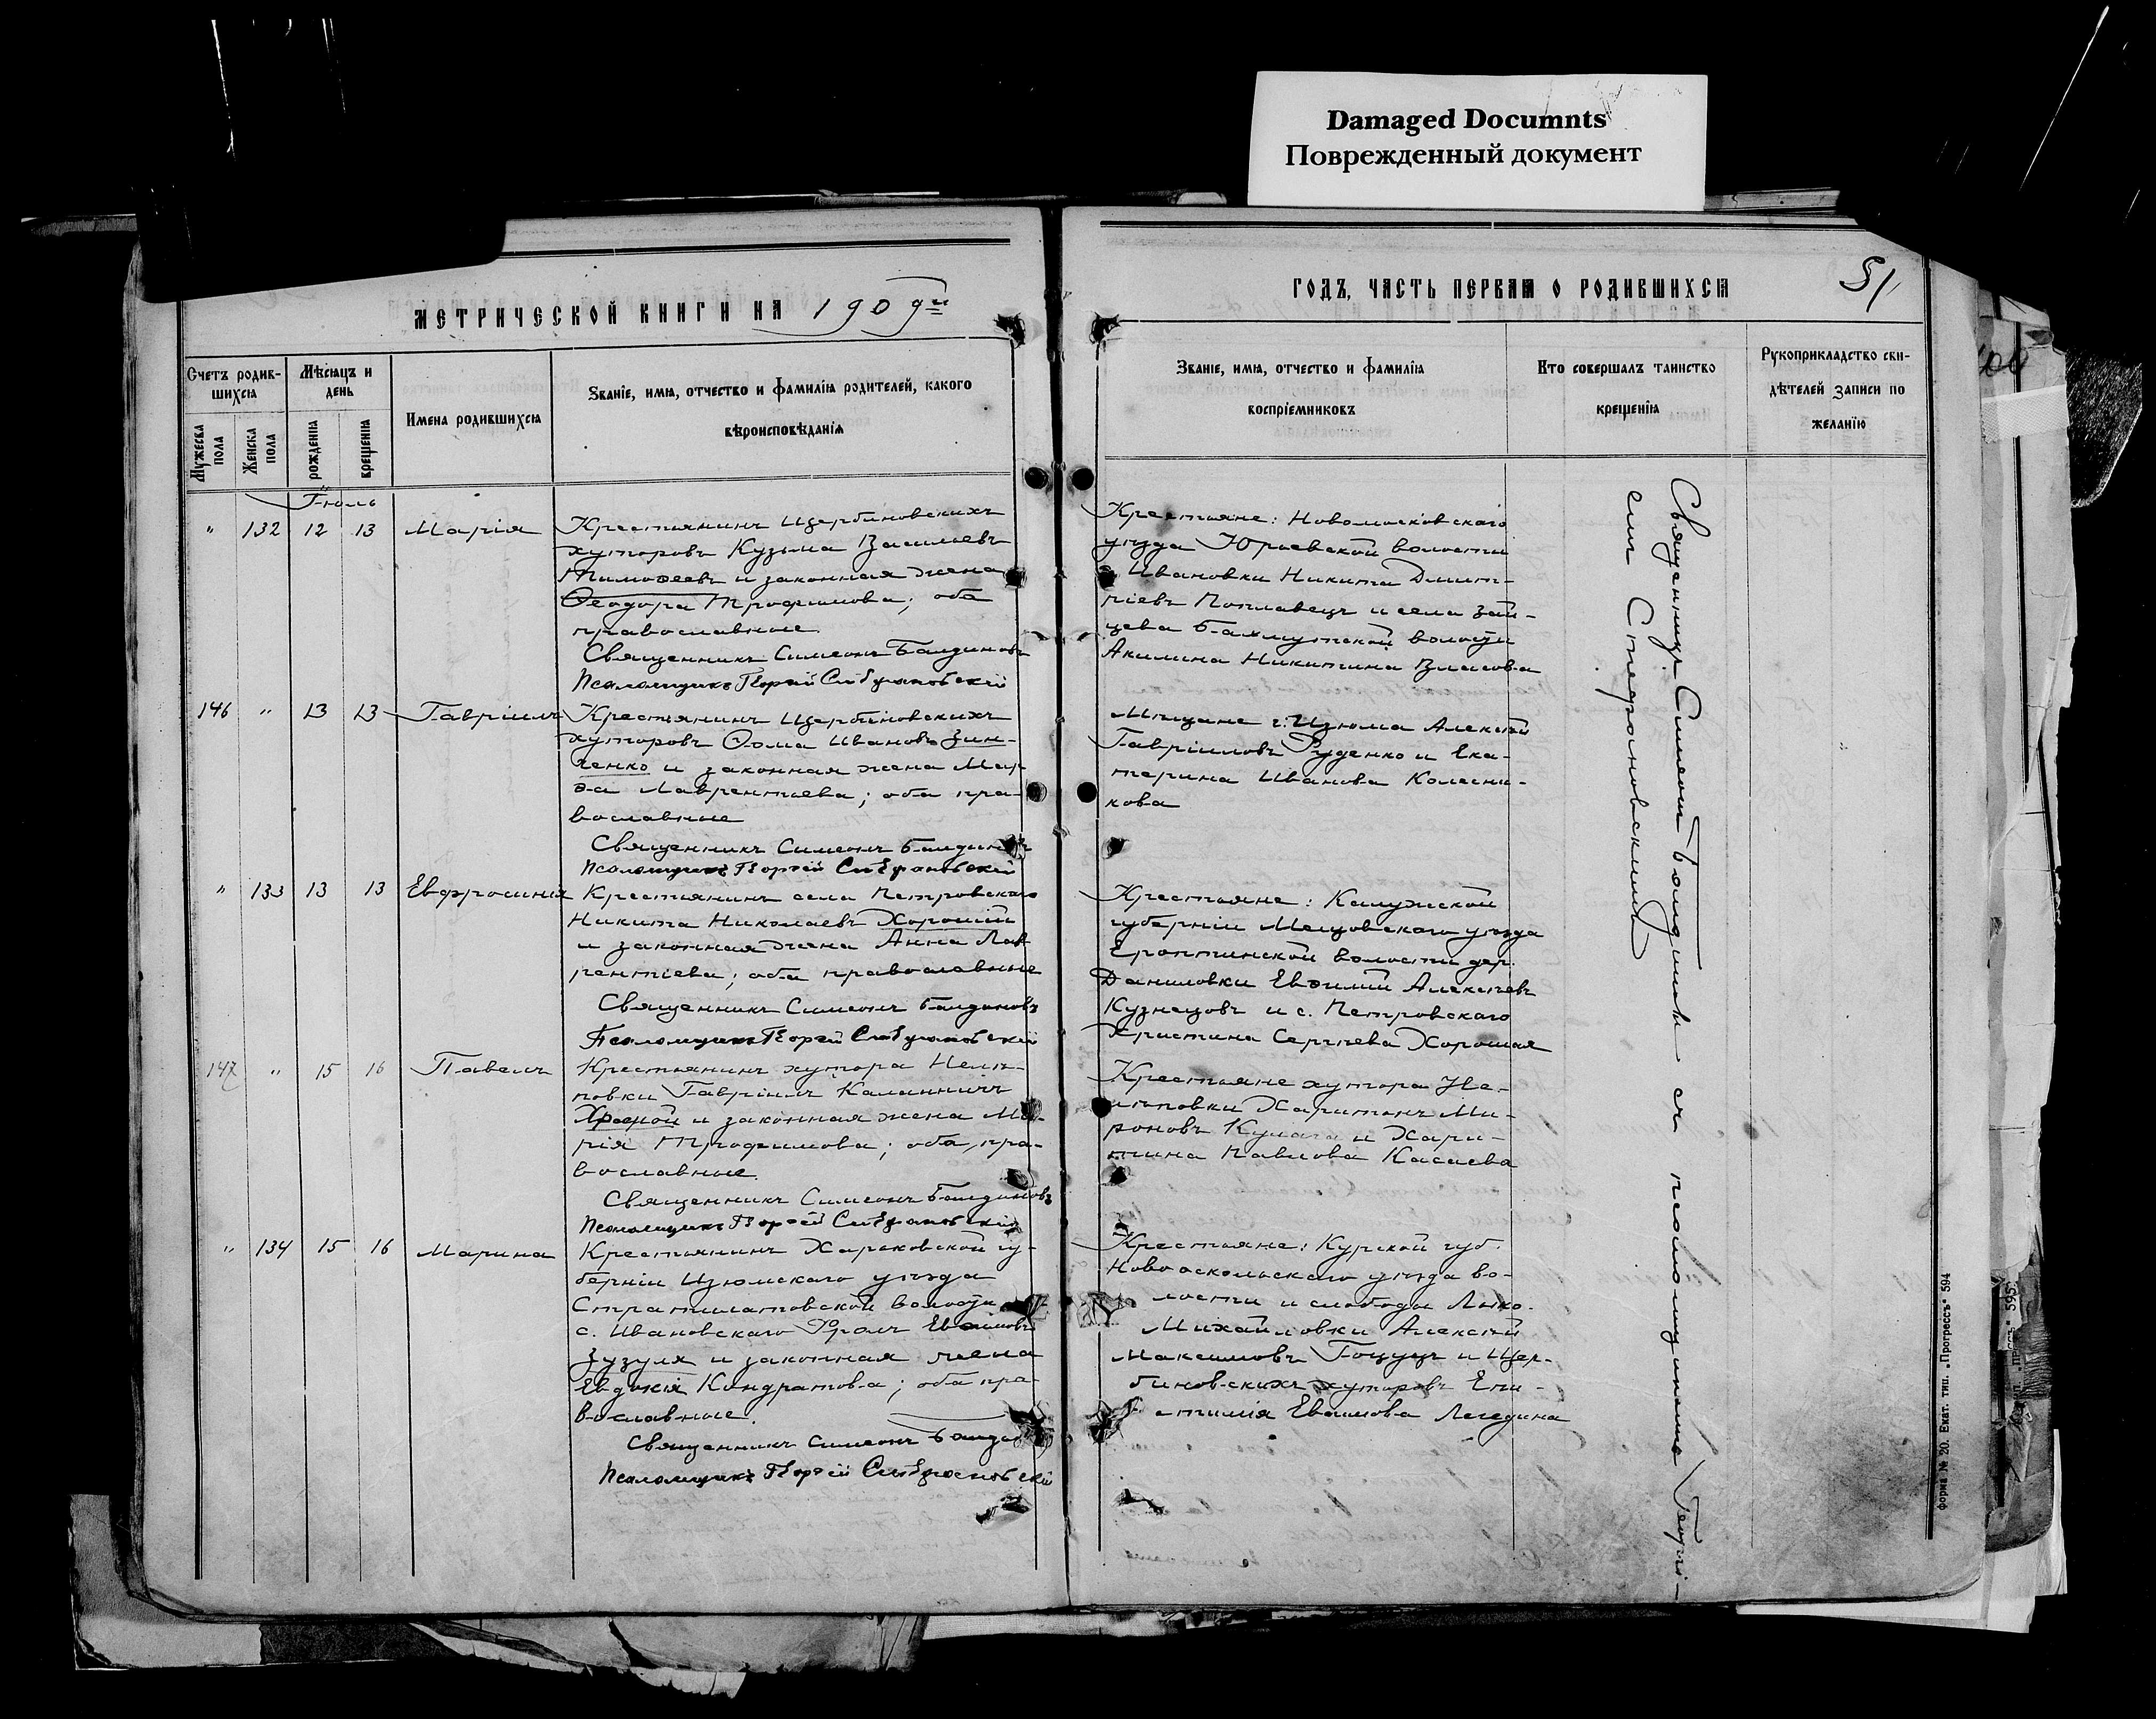 Damaged Documnts
Поврежденный документ
МЕТРИЧЕСКОЙ КНИГИ НА 1909 й
ГОДЪ, ЧАСТЬ ПЕРВАЯ О РОДИВШИХСЯ
51
Счетъ родившихся
Мужеска пола
Женска пола
Мѣсяцъ и день
рожденія
крещенія
Имена родившихся
Званіе, имя, отчество и фамилія родителей, какого
вѣроисповѣданія
Званіе, имя, отчество и фамилія
воспріемниковъ
Кто совершалъ таинство
крещенія
Рукоприкладство сви-
дѣтелей записи по
желанію
Іюль
" 132 12 13 Марія
Крестьянинъ Щербиновскихъ
хуторовъ Кузьма Васильевъ
Тимоѳеевъ и законная жена
Ѳеодора Трофимова; оба
православные.
Священникъ Симеонъ Балдиновъ
Псаломщикъ Георгій Стефановскій
Крестьяне: Новомосковскаго
уѣзда Юрьевской волости
Ивановки Никита Дмит-
ріевъ Поплавецъ и села Зай-
цева Бахмутской волости
Акилина Никитина Власова
146 " 13 13 Гавріилъ
Крестьянинъ Щербиновскихъ
хуторовъ Ѳома Ивановъ Зин-
ченко и законная жена Мар-
ѳа Лаврентьева; оба пра-
вославные
Священникъ Симеонъ Балдиновъ
Псаломщикъ Георгій Стефановскій
Мѣщане г. Изюма Алексѣй
Гавріиловъ Руденко и Ека-
терина Иванова Колесни-
кова
" 133 13 13 Евфросинія
Крестьянинъ села Петровскаго
Никита Николаевъ Хорошій
и законная жена Анна Лав-
рентіева; оба православные
Священникъ Симеонъ Балдиновъ
Псаломщикъ Георгій Стефановскій
Крестьяне: Калужской
губерніи Мещовскаго уѣзда
волости дер.
Даниловки Евѳимій Алексѣевъ
Кузнецовъ и с. Петровскаго
Христина Сергѣева Хорошая
147 " 15 16 Павелъ
Крестьянинъ хутора Нелѣ-
повки Гавріилъ
и законная жена Ма-
рія Трофимова; оба пра-
вославные.
Священникъ Симеонъ Балдиновъ
Псаломщикъ Георгій Стефановскій
Крестьяне хутора Не-
лѣповки Харитонъ Ми-
роновъ Кулага и Хари-
тина Павлова Касаева
" 134 15 16 Марина
Крестьянинъ Харьковской гу-
берніи Изюмскаго уѣзда
волости
с. Ивановскаго Фролъ Евѳимовъ
Зузуля и законная жена
Евдокія Кондратова; оба пра-
вославные.
Священникъ Симеонъ Балдиновъ
Псаломщикъ Георгій Стефановскій
Крестьяне: Курской губ.
Новооскольскаго уѣзда во-
лости и слободы
Михайловки Алексѣй
Максимовъ и Щер-
биновскихъ хуторовъ Епи-
стимія Евѳимова
Священникъ Симеонъ Балдиновъ съ псаломщикомъ Георгі-
емъ Стефановскимъ
Форма № 20. Екат. тип. „Прогрессъ" 594